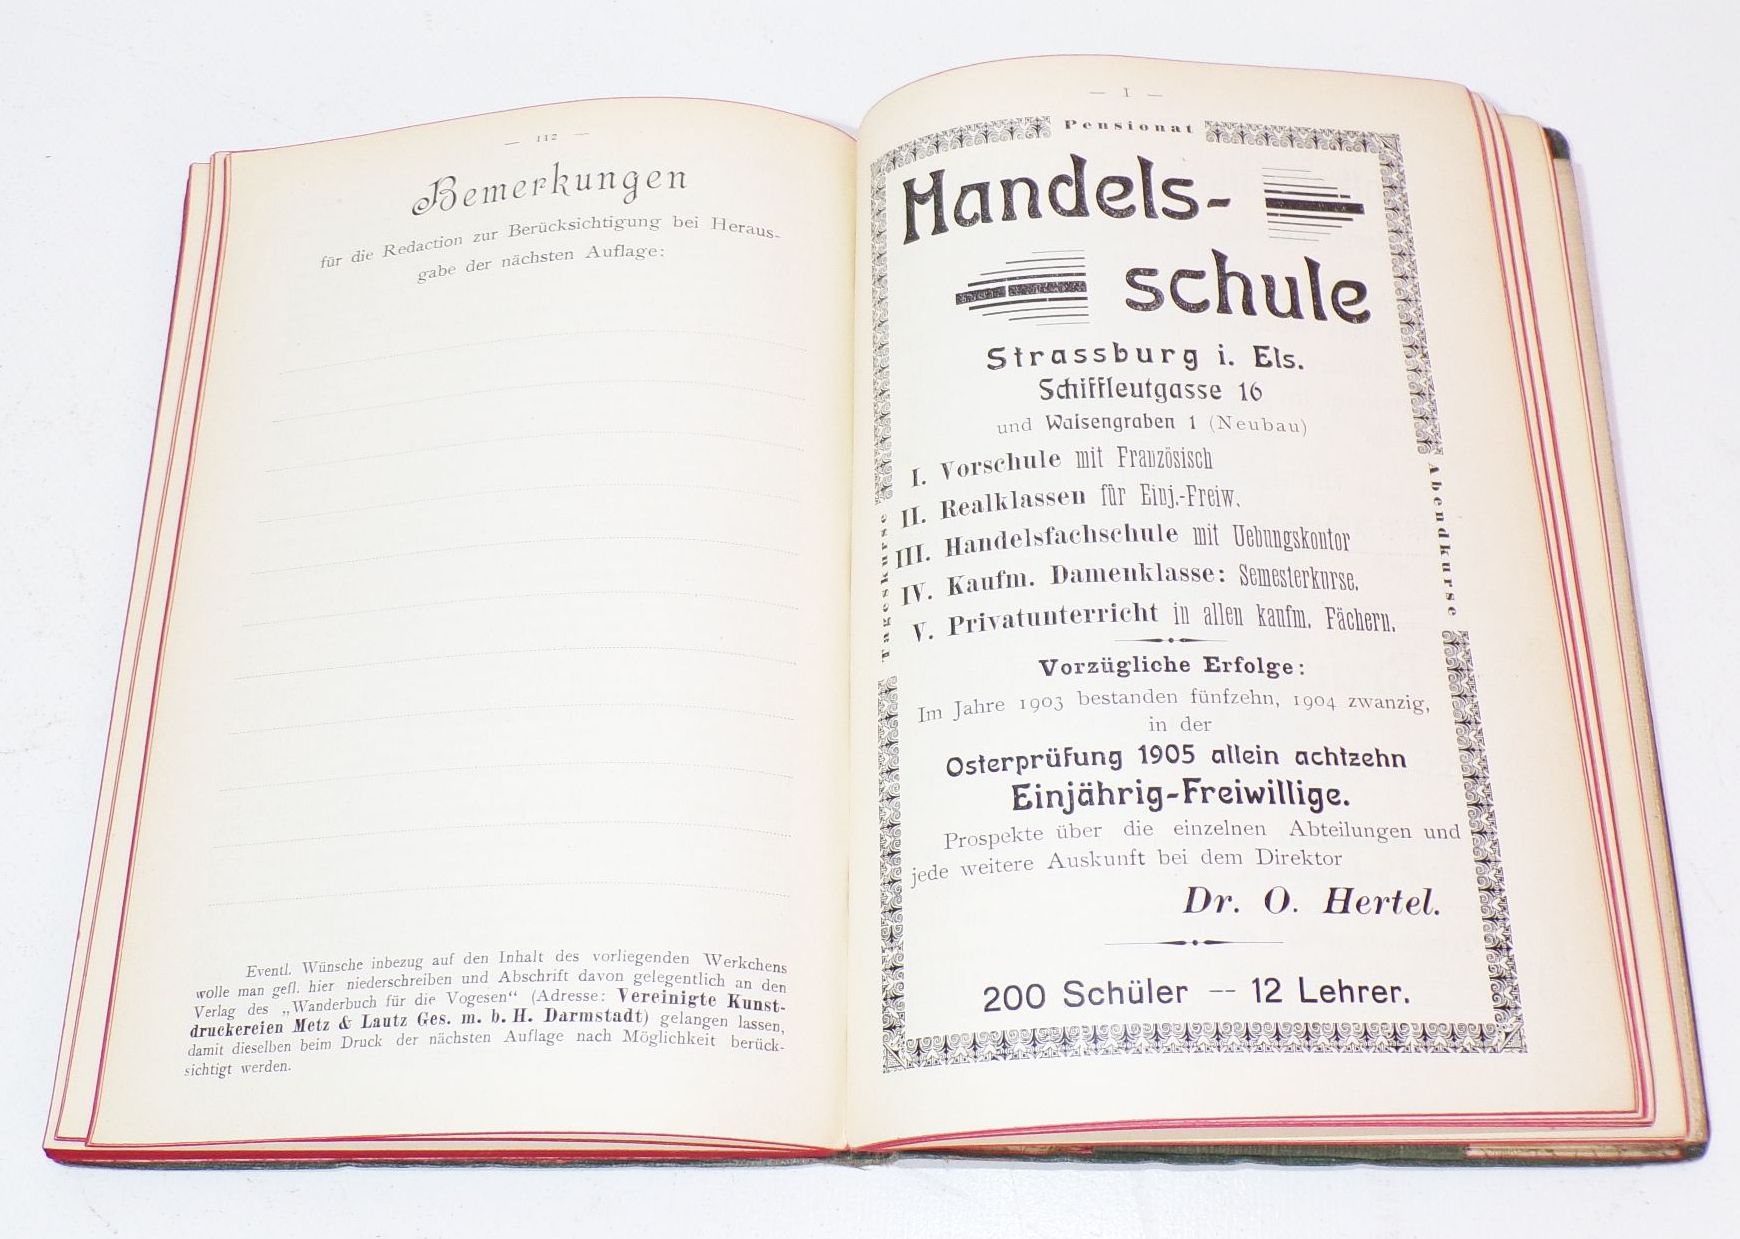 — 112 —
Bemerkungen
für die Redaction zur Berücksichtigung bei Heraus-
gabe der nächsten Auflage:
Eventl. Wünsche inbezug auf den Inhalt des vorliegenden Werkchens
wolle man gefl. hier niederschreiben und Abschrift davon gelegentlich an den
Verlag des „Wanderbuch für die Vogesen“ (Adresse: Vereinigte Kunst-
druckereien Metz & Lautz Ges. m. b. H. Darmstadt) gelangen lassen,
damit dieselben beim Druck der nächsten Auflage nach Möglichkeit berück-
sichtigt werden.
— I —
Pensionat
Handels-
schule
Strassburg i. Els.
Schiffleutgasse 16
und Waisengraben 1 (Neubau)
I. Vorschule mit Französisch
II. Realklassen für Einj.-Freiw.
III. Handelsfachschule mit Uebungskontor
IV. Kaufm. Damenklasse: Semesterkurse.
V. Privatunterricht in allen kaufm. Fächern.
Tageskurse
Abendkurse
Vorzügliche Erfolge:
Im Jahre 1903 bestanden fünfzehn, 1904 zwanzig,
in der
Osterprüfung 1905 allein achtzehn
Einjährig-Freiwillige.
Prospekte über die einzelnen Abteilungen und
jede weitere Auskunft bei dem Direktor
Dr. O. Hertel.
200 Schüler -- 12 Lehrer.